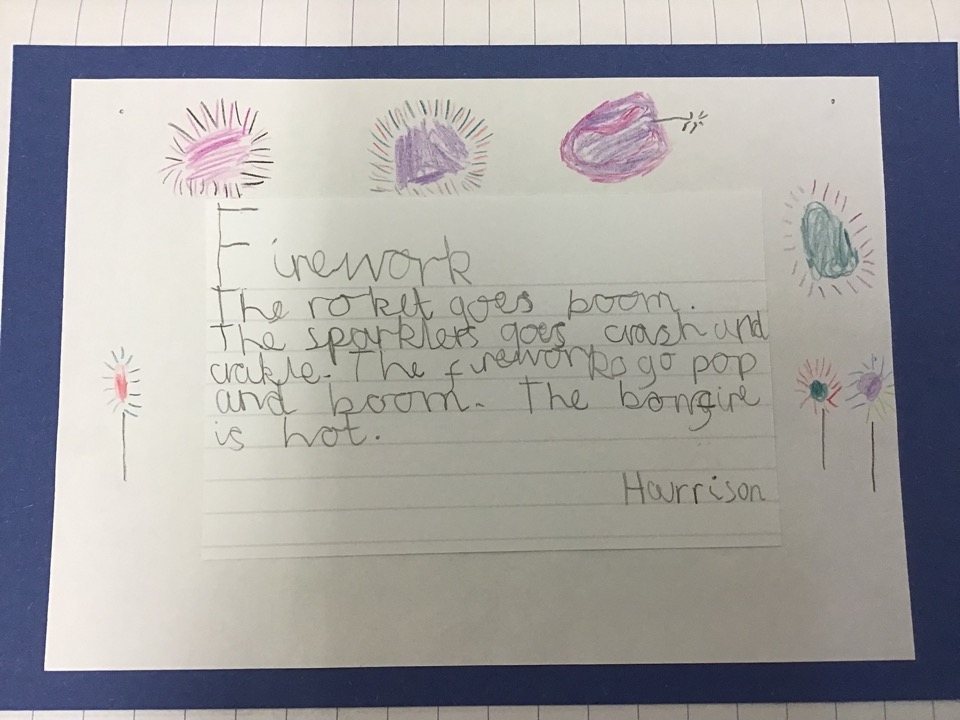 Firework
The roket goes boom.
The sparklers goes crash and
crakle. The fireworks go pop
and boom. The bongire
is hot.
Harrison